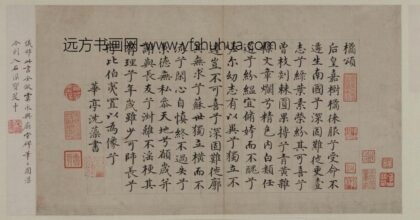 远方书画网 www.yfshuhua.com
橘頌
后皇嘉樹橘徠服兮受命不
遷生南國兮深固難徙更壹
志兮綠葉素榮紛其可喜兮
曾枝剡棘圓果摶兮青黃雜
糅文章爛兮精色內白類任
道兮紛縕宜脩姱而不醜兮
嗟爾幼志有以異兮獨立不
遷豈不可喜兮深固難徙廓
其無求兮蘇世獨立橫而不
流兮閉心自慎終不過失兮
秉德無私參天地兮願歲并
謝與長友兮淑離不淫梗其
有理兮年歲雖少可師長兮
行比伯夷置以為像兮
華亭沈藻書